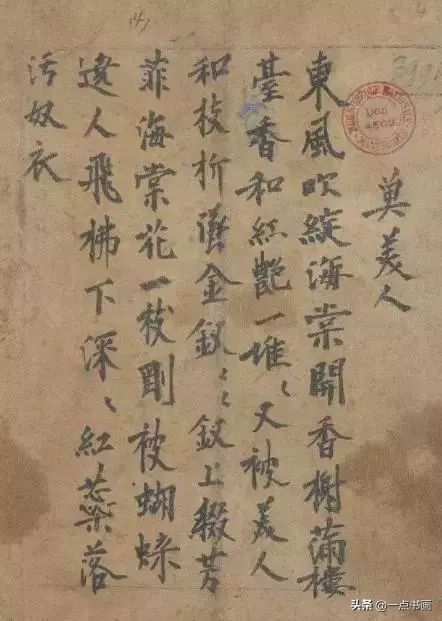 莫美人
東風吹綻海棠開香榭滿樓
臺香和紅艷一堆〻又被美人
和枝折墜金釵〻釵上綴芳
菲海棠花一枝剛被蝴蝶
遶人飛拂下深〻紅蘂落
污奴衣
DON
4502
头条 @一点书画